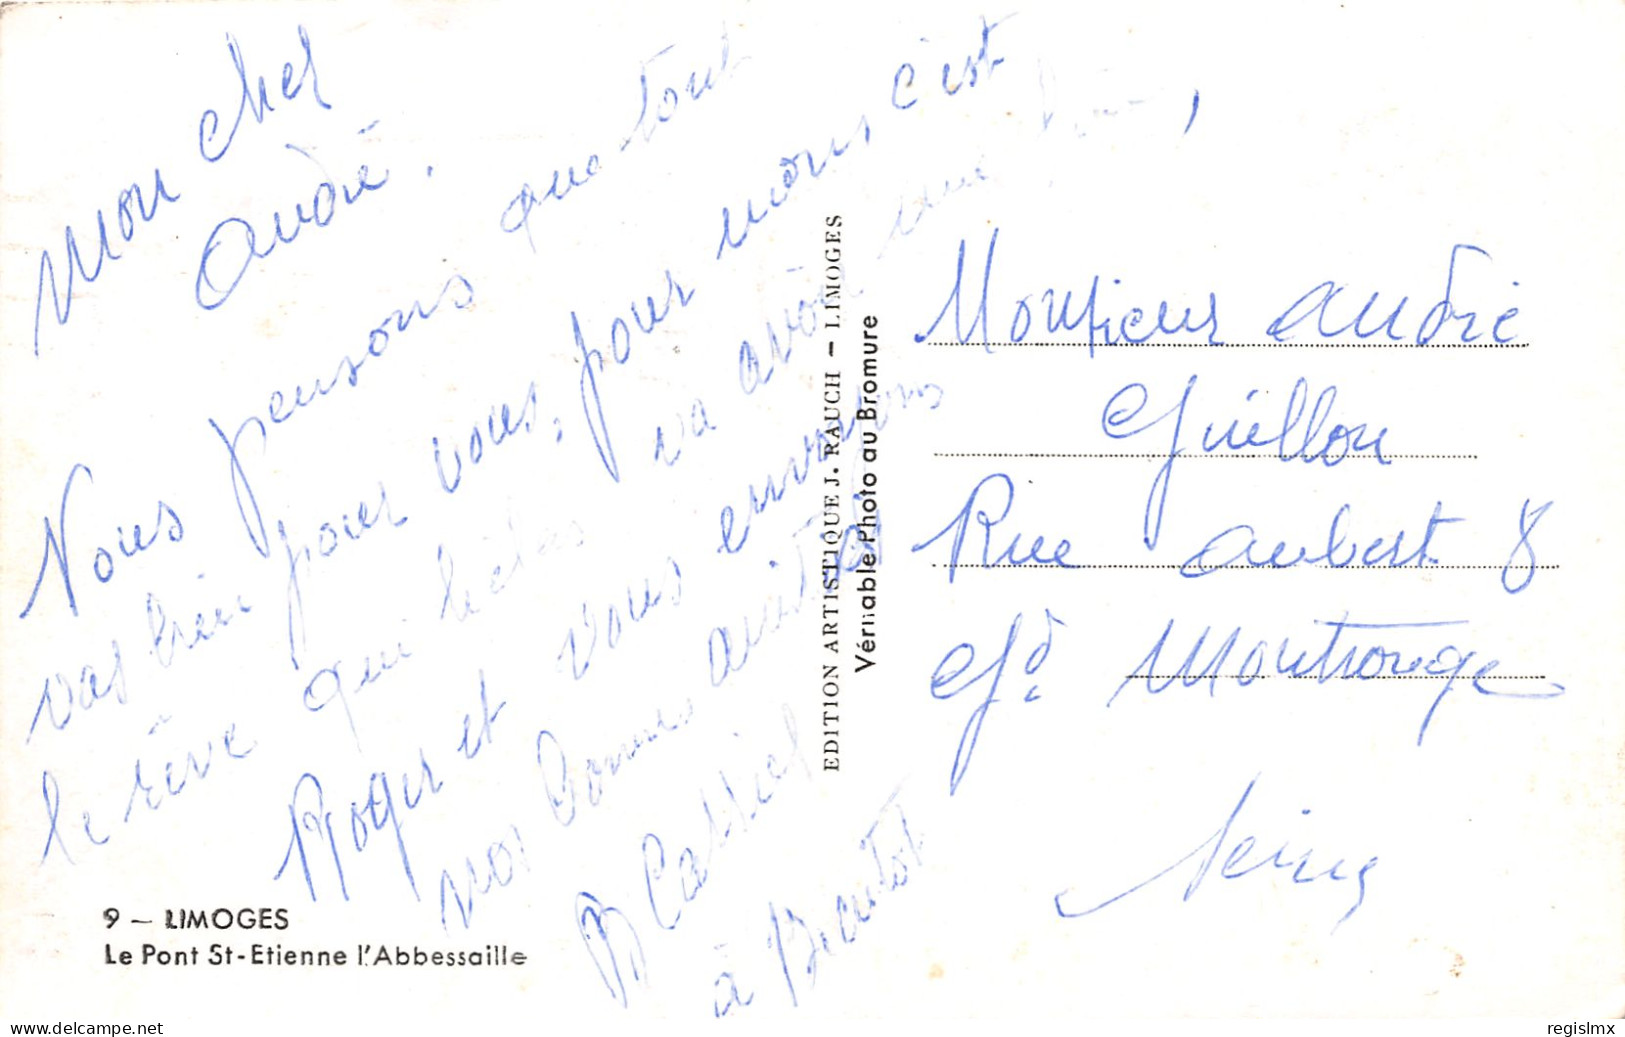 Mon cher
André.
Nous pensons que tout
vas bien pour vous, pour nous c'est
le rêve qui hélas va avoir une fin,
Roger et vous envoyons
nos bonnes amitiés
B Cassiel
à
EDITION ARTISTIQUE J. RAUCH — LIMOGES
Véritable Photo au Bromure
Monsieur André
Guillon
Rue Aubert 8
Gd. Montrouge
Seine
9 — LIMOGES
Le Pont St-Etienne l'Abbessaille
delcampe.net
regislmx